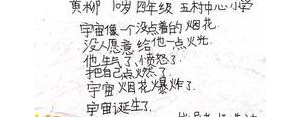 黄柳 10岁 四年级 五村中心小学
宇宙像一个没点着的烟花
没人愿意给他一点火光
他生气了，愤怒了
把自己点燃了
宇宙烟花爆炸了
宇宙诞生了